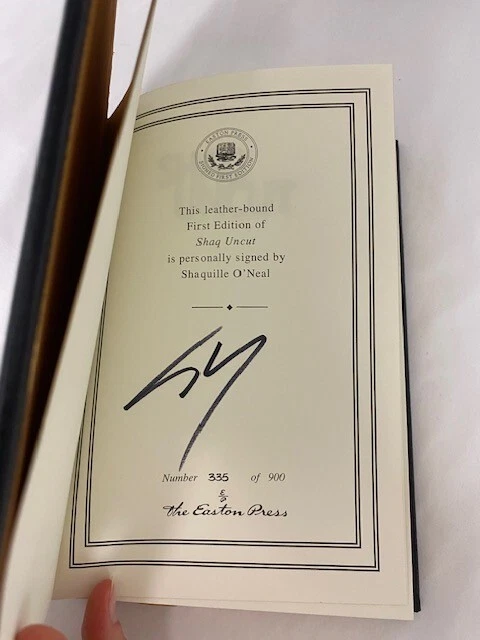 EASTON PRESS
SIGNED FIRST EDITION
This leather-bound
First Edition of
Shaq Uncut
is personally signed by
Shaquille O'Neal
Number 335 of 900
The Easton Press